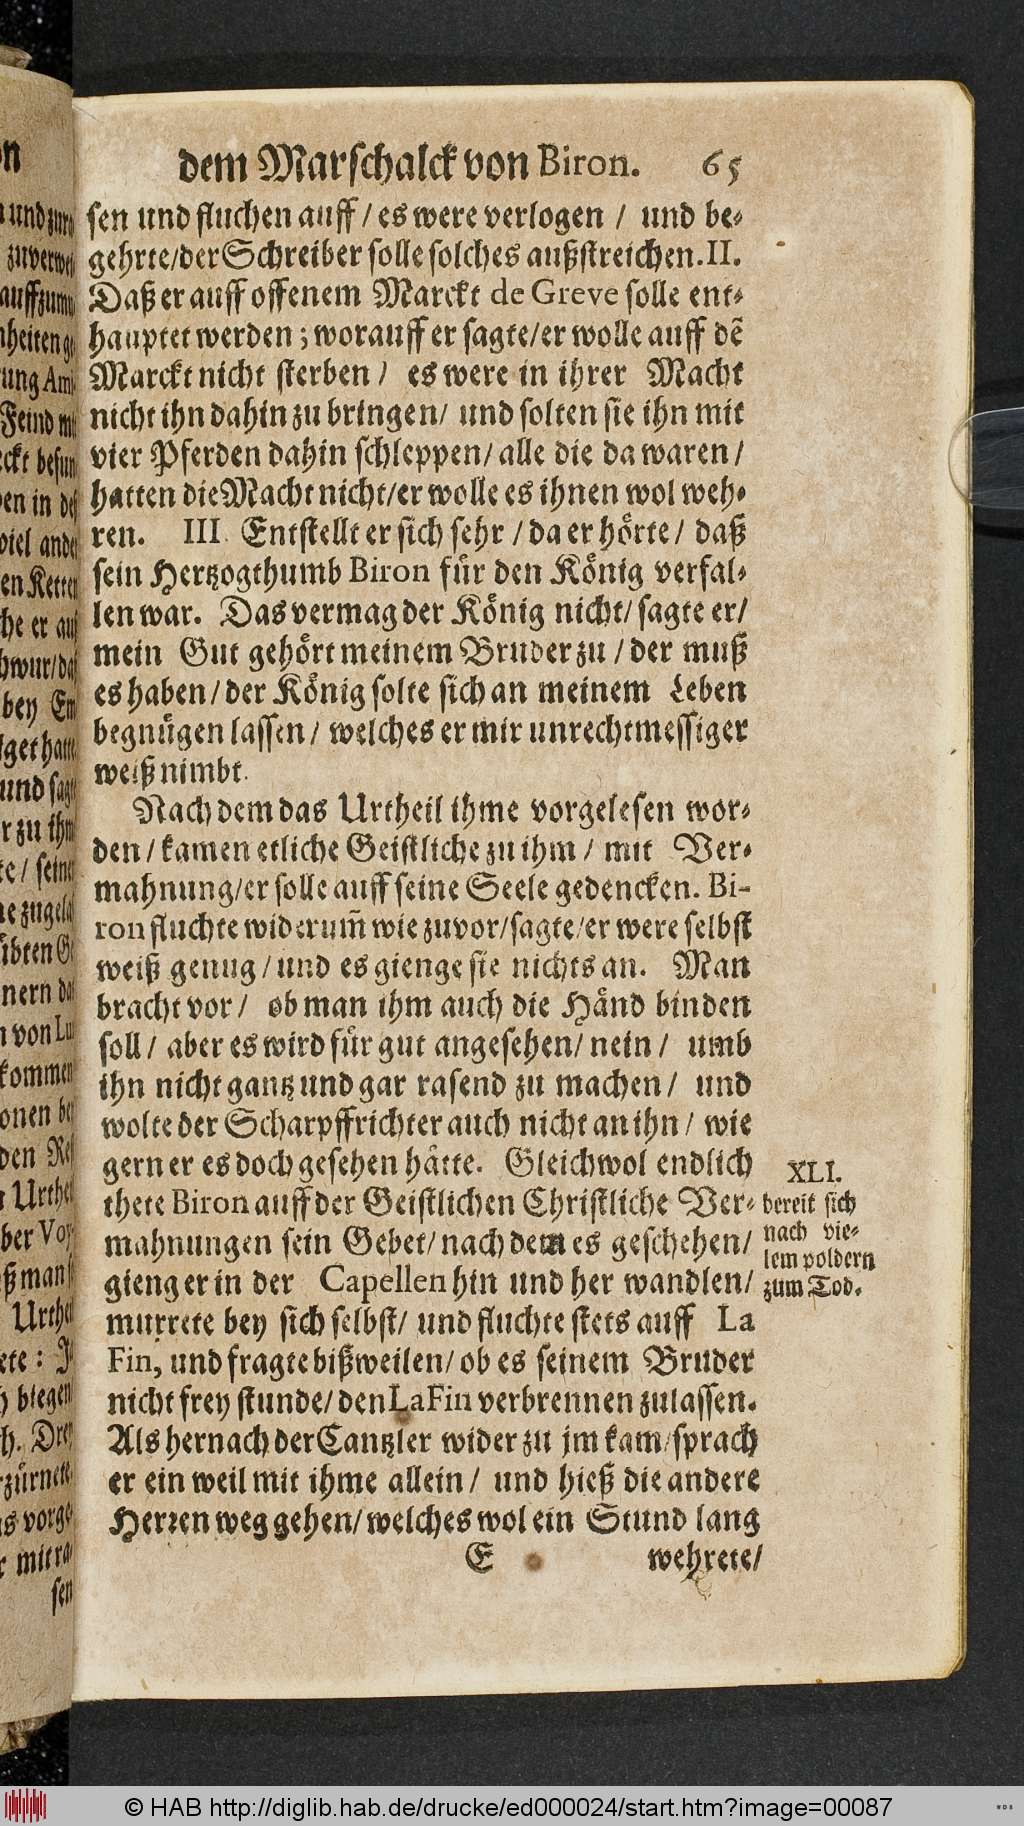 dem Marschalck von Biron. 65
sen und fluchen auff / es were verlogen / und be-
gehrte/der Schreiber solle solches außstreichen. II.
Daß er auff offenem Marckt de Greve solle ent-
hauptet werden; worauff er sagte/er wolle auff dẽ
Marckt nicht sterben / es were in ihrer Macht
nicht ihn dahin zu bringen/ und solten sie ihn mit
vier Pferden dahin schleppen/ alle die da waren /
hatten die Macht nicht/er wolle es ihnen wol weh-
ren. III. Entstellt er sich sehr / da er hörte / daß
sein Hertzogthumb Biron für den König verfal-
len war. Das vermag der König nicht/ sagte er/
mein Gut gehört meinem Bruder zu / der muß
es haben / der König solte sich an meinem Leben
begnügen lassen / welches er mir unrechtmessiger
weiß nimbt.
Nach dem das Urtheil ihme vorgelesen wor-
den / kamen etliche Geistliche zu ihm / mit Ver-
mahnung/er solle auff seine Seele gedencken. Bi-
ron fluchte widerum̃ wie zuvor/sagte/er were selbst
weiß genug / und es gienge sie nichts an. Man
bracht vor / ob man ihm auch die Händ binden
soll / aber es wird für gut angesehen/ nein / umb
ihn nicht gantz und gar rasend zu machen / und
wolte der Scharpffrichter auch nicht an ihn / wie
gern er es doch gesehen hätte. Gleichwol endlich
thete Biron auff der Geistlichen Christliche Ver-
mahnungen sein Gebet/ nach dem es geschehen/
gieng er in der Capellen hin und her wandlen/
murrete bey sich selbst/ und fluchte stets auff La
Fin, und fragte bißweilen/ ob es seinem Bruder
nicht frey stunde/ den La Fin verbrennen zulassen.
Als hernach der Cantzler wider zu jm kam/sprach
er ein weil mit ihme allein / und hieß die andere
Herren weg gehen/ welches wol ein Stund lang
E wehrete/
XLI.
bereit sich
nach vie-
lem poldern
zum Tod.
© HAB http://diglib.hab.de/drucke/ed000024/start.htm?image=00087